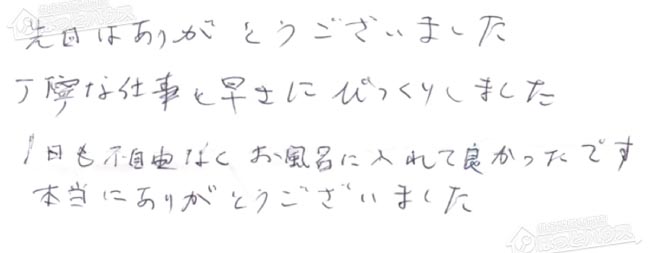 先日はありがとうございました
丁寧な仕事と早さにびっくりしました
1日も不自由なくお風呂に入れて良かったです
本当にありがとうございました